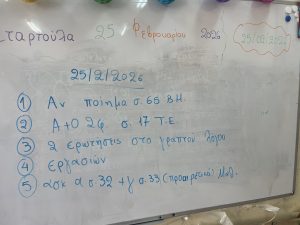 Σταρτούλα 25 Φεβρουαρίου 2026
25/02/2026
25/2/2026
① Αν ποίημα σ. 65 Β.Μ.
② Α+Ο 2φ. σ. 17 Τ.Ε.
③ 2 ερωτήσεις στο γραπτού λόγου
④ εργασιών
⑤ ασκ α σ. 32 + γ σ. 33 (προαιρετικά) Μαθ.